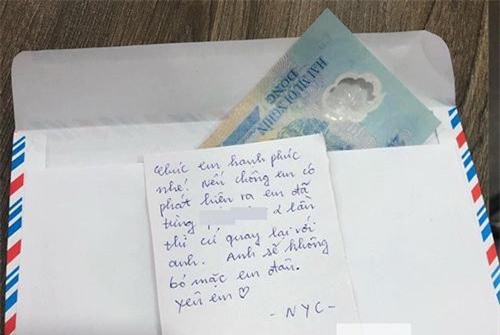 HAI MƯƠI NGHÌN
ĐỒNG
Chúc em hạnh phúc
nhé! Nếu chồng em có
phát hiện ra em đã
từng 2 lần
thì cứ quay lại với
anh. Anh sẽ không
bỏ mặc em đâu.
Yêu em ♡
- NYC -